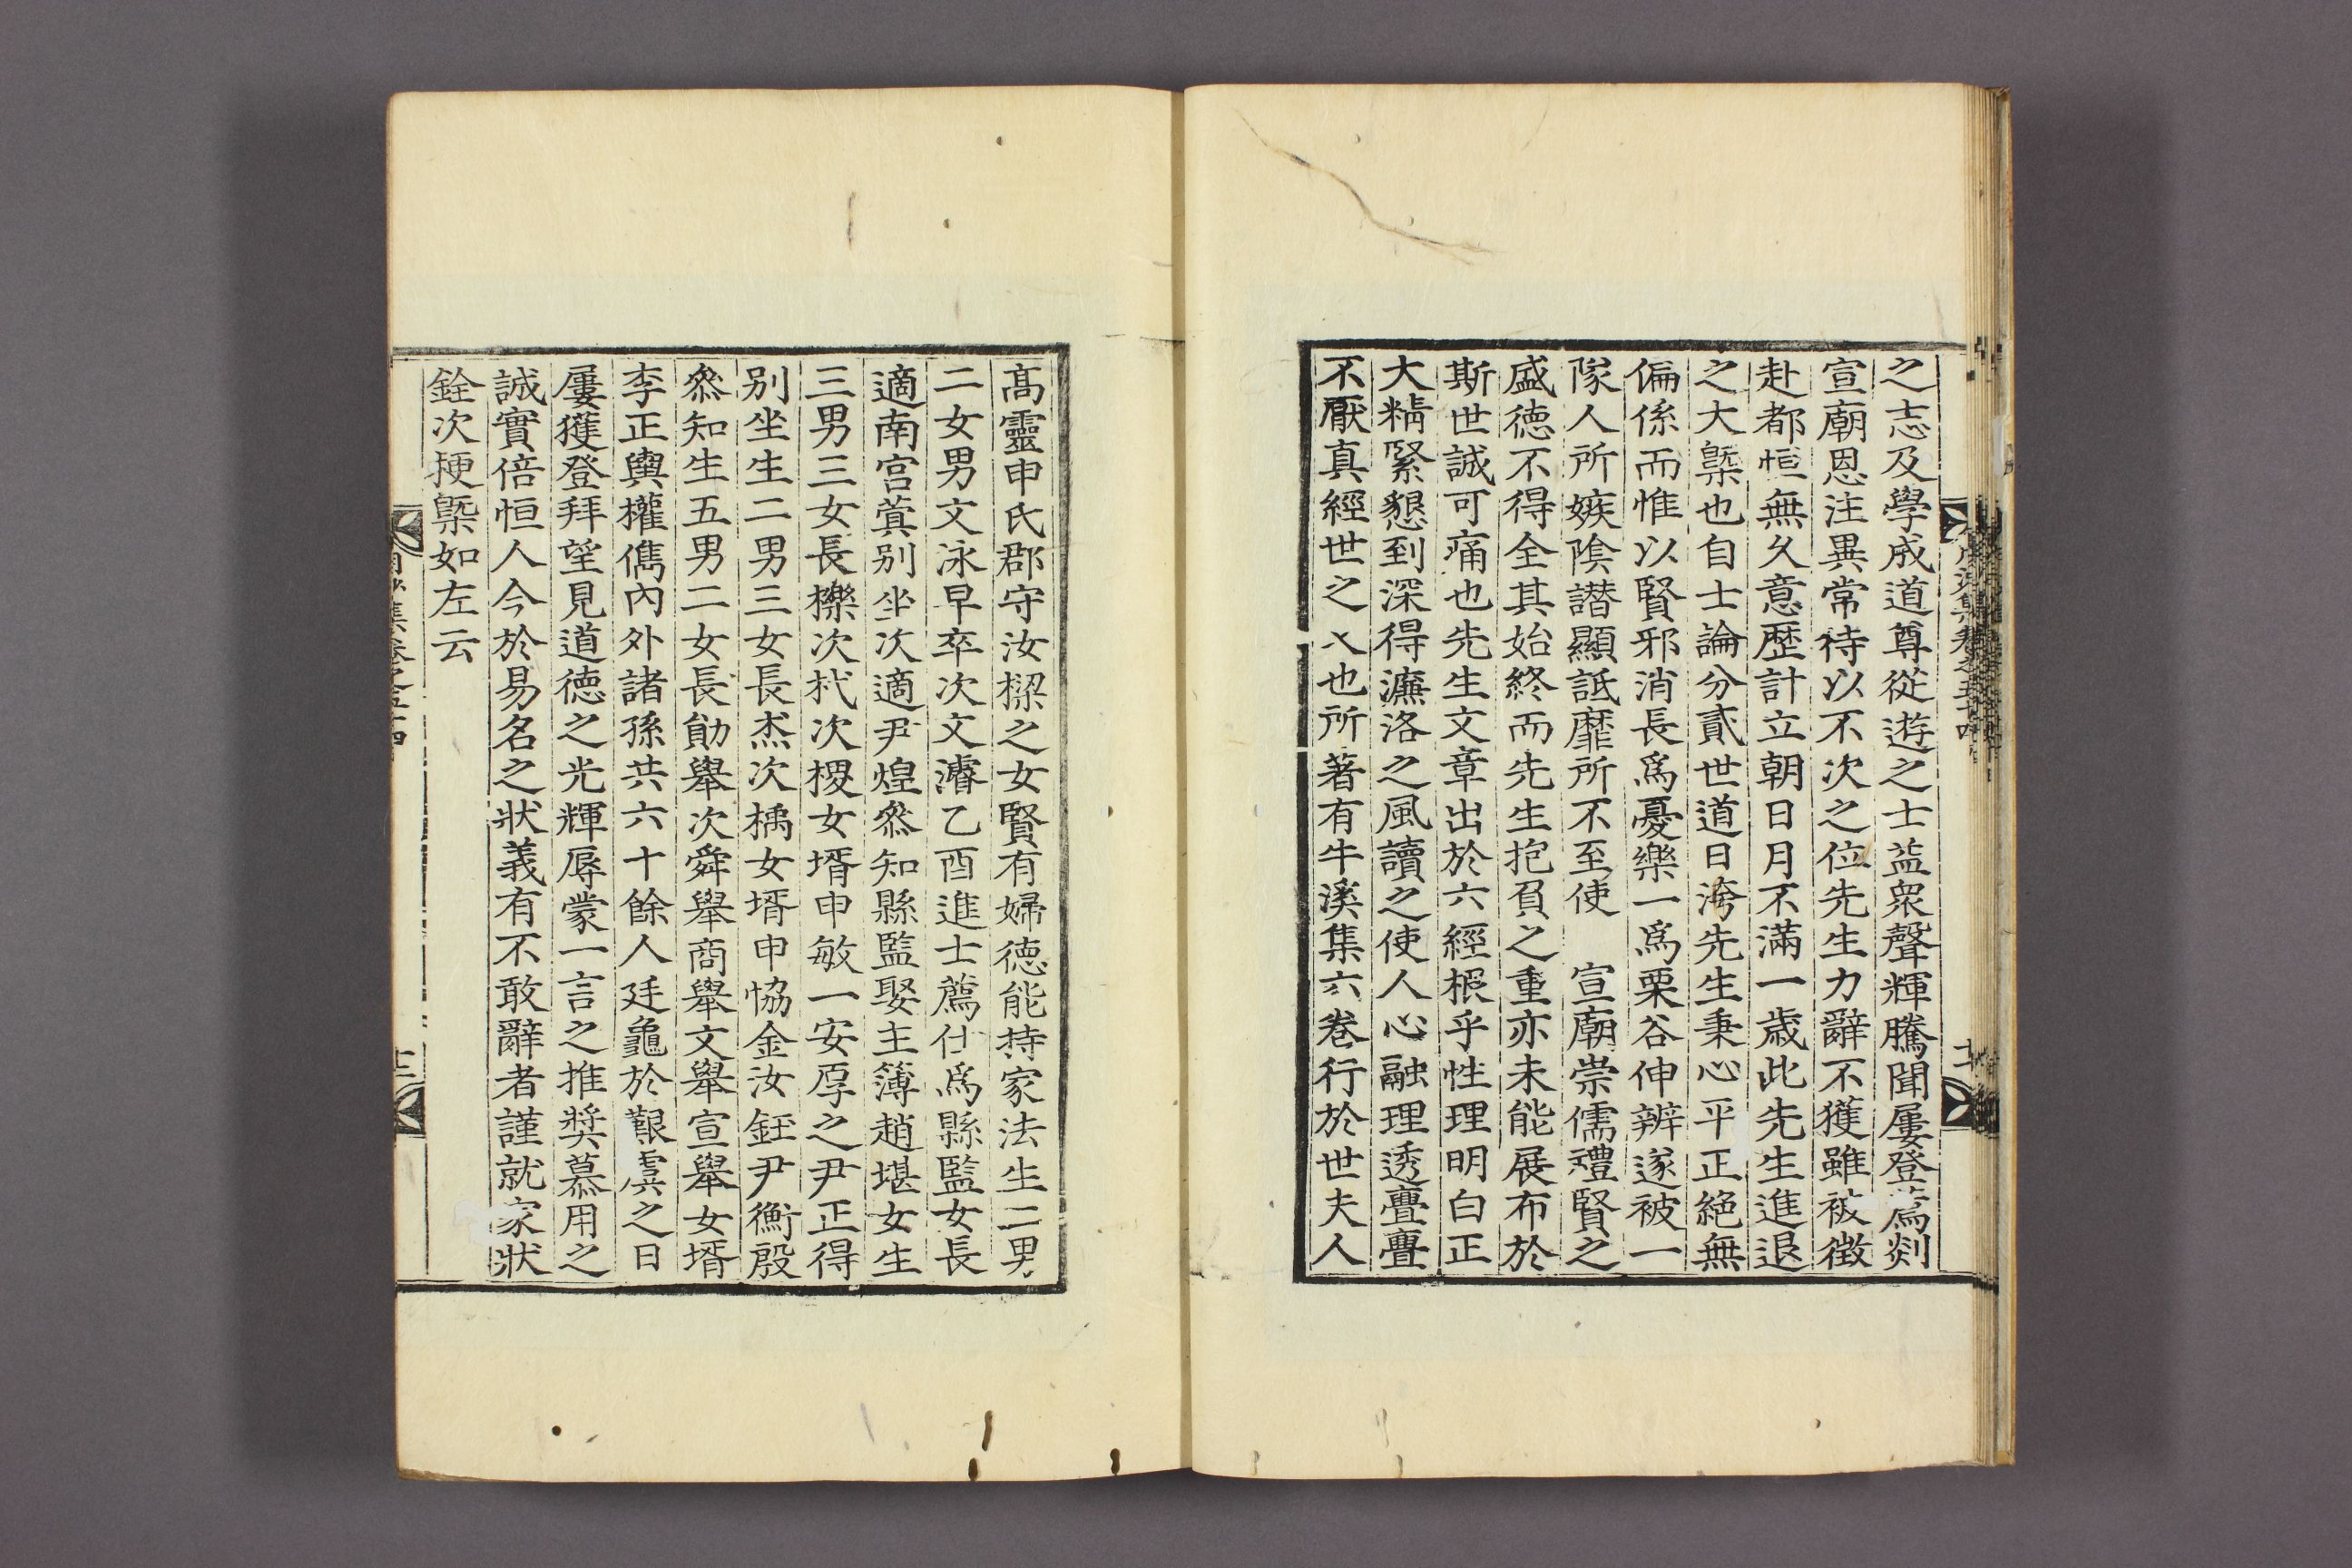 之志及學成道尊從遊之士益衆聲輝騰聞屢登薦剡
宣廟恩注異常待以不次之位先生力辭不獲雖被徵
赴都恒無久意歷計立朝日月不滿一歲此先生進退
之大槩也自士論分貳世道日洿先生秉心平正絶無
偏係而惟以賢邪消長爲憂樂一爲栗谷伸辨遂被一
隊人所嫉陰譖顯詆靡所不至使 宣廟崇儒禮賢之
盛德不得全其始終而先生抱負之重亦未能展布於
斯世誠可痛也先生文章出於六經根乎性理明白正
大精緊懇到深得濂洛之風讀之使人心融理透亹亹
不厭真經世之人也所著有牛溪集六卷行於世夫人
高靈申氏郡守汝樑之女賢有婦德能持家法生二男
二女男文泳早卒次文濬乙酉進士薦仕爲縣監女長
適南宮蓂別坐次適尹煌叅知縣監娶主簿趙堪女生
三男三女長櫟次杙次㮨女壻申敏一安厚之尹正得
別坐生二男三女長杰次楀女壻申恊金汝鈺尹衡殷
叅知生五男二女長勛舉次舜舉商舉文舉宣舉女壻
李正輿權儁內外諸孫共六十餘人廷龜於艱虞之日
屢獲登拜望見道德之光輝辱蒙一言之推奬慕用之
誠實倍恒人今於易名之狀義有不敢辭者謹就家狀
銓次梗槩如左云